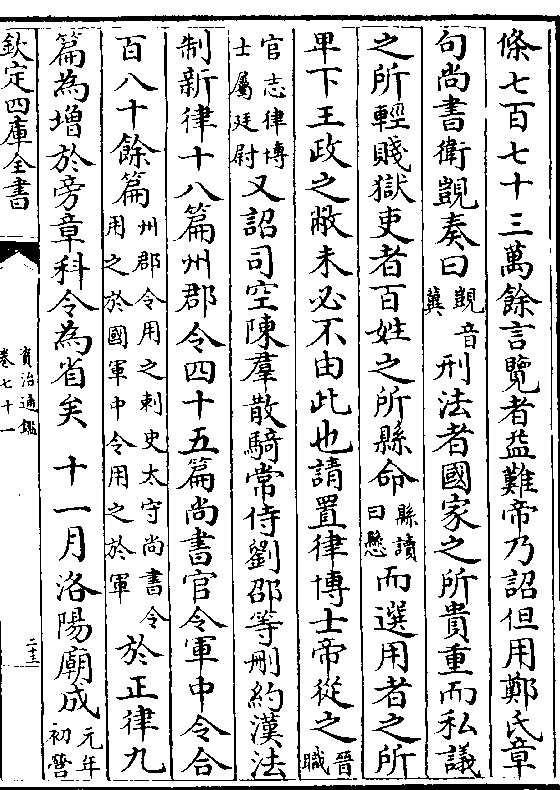 條七百七十三萬餘言覽者益難帝乃詔但用鄭氏章
句尚書衛覬奏曰覬音冀刑法者國家之所貴重而私議
之所輕賤獄吏者百姓之所縣命縣讀曰懸而選用者之所
卑下王政之敝未必不由此也請置律博士帝從之晉職
官志律博士屬廷尉又詔司空陳羣散騎常侍劉邵等刪約漢法
制新律十八篇州郡令四十五篇尚書官令軍中令合
百八十餘篇州郡令用之刺史太守尚書令用之於國軍中令用之於軍於正律九
篇為增於旁章科令為省矣 十一月洛陽廟成元年初營
欽定四庫全書
資治通鑑
卷七十一
二十三